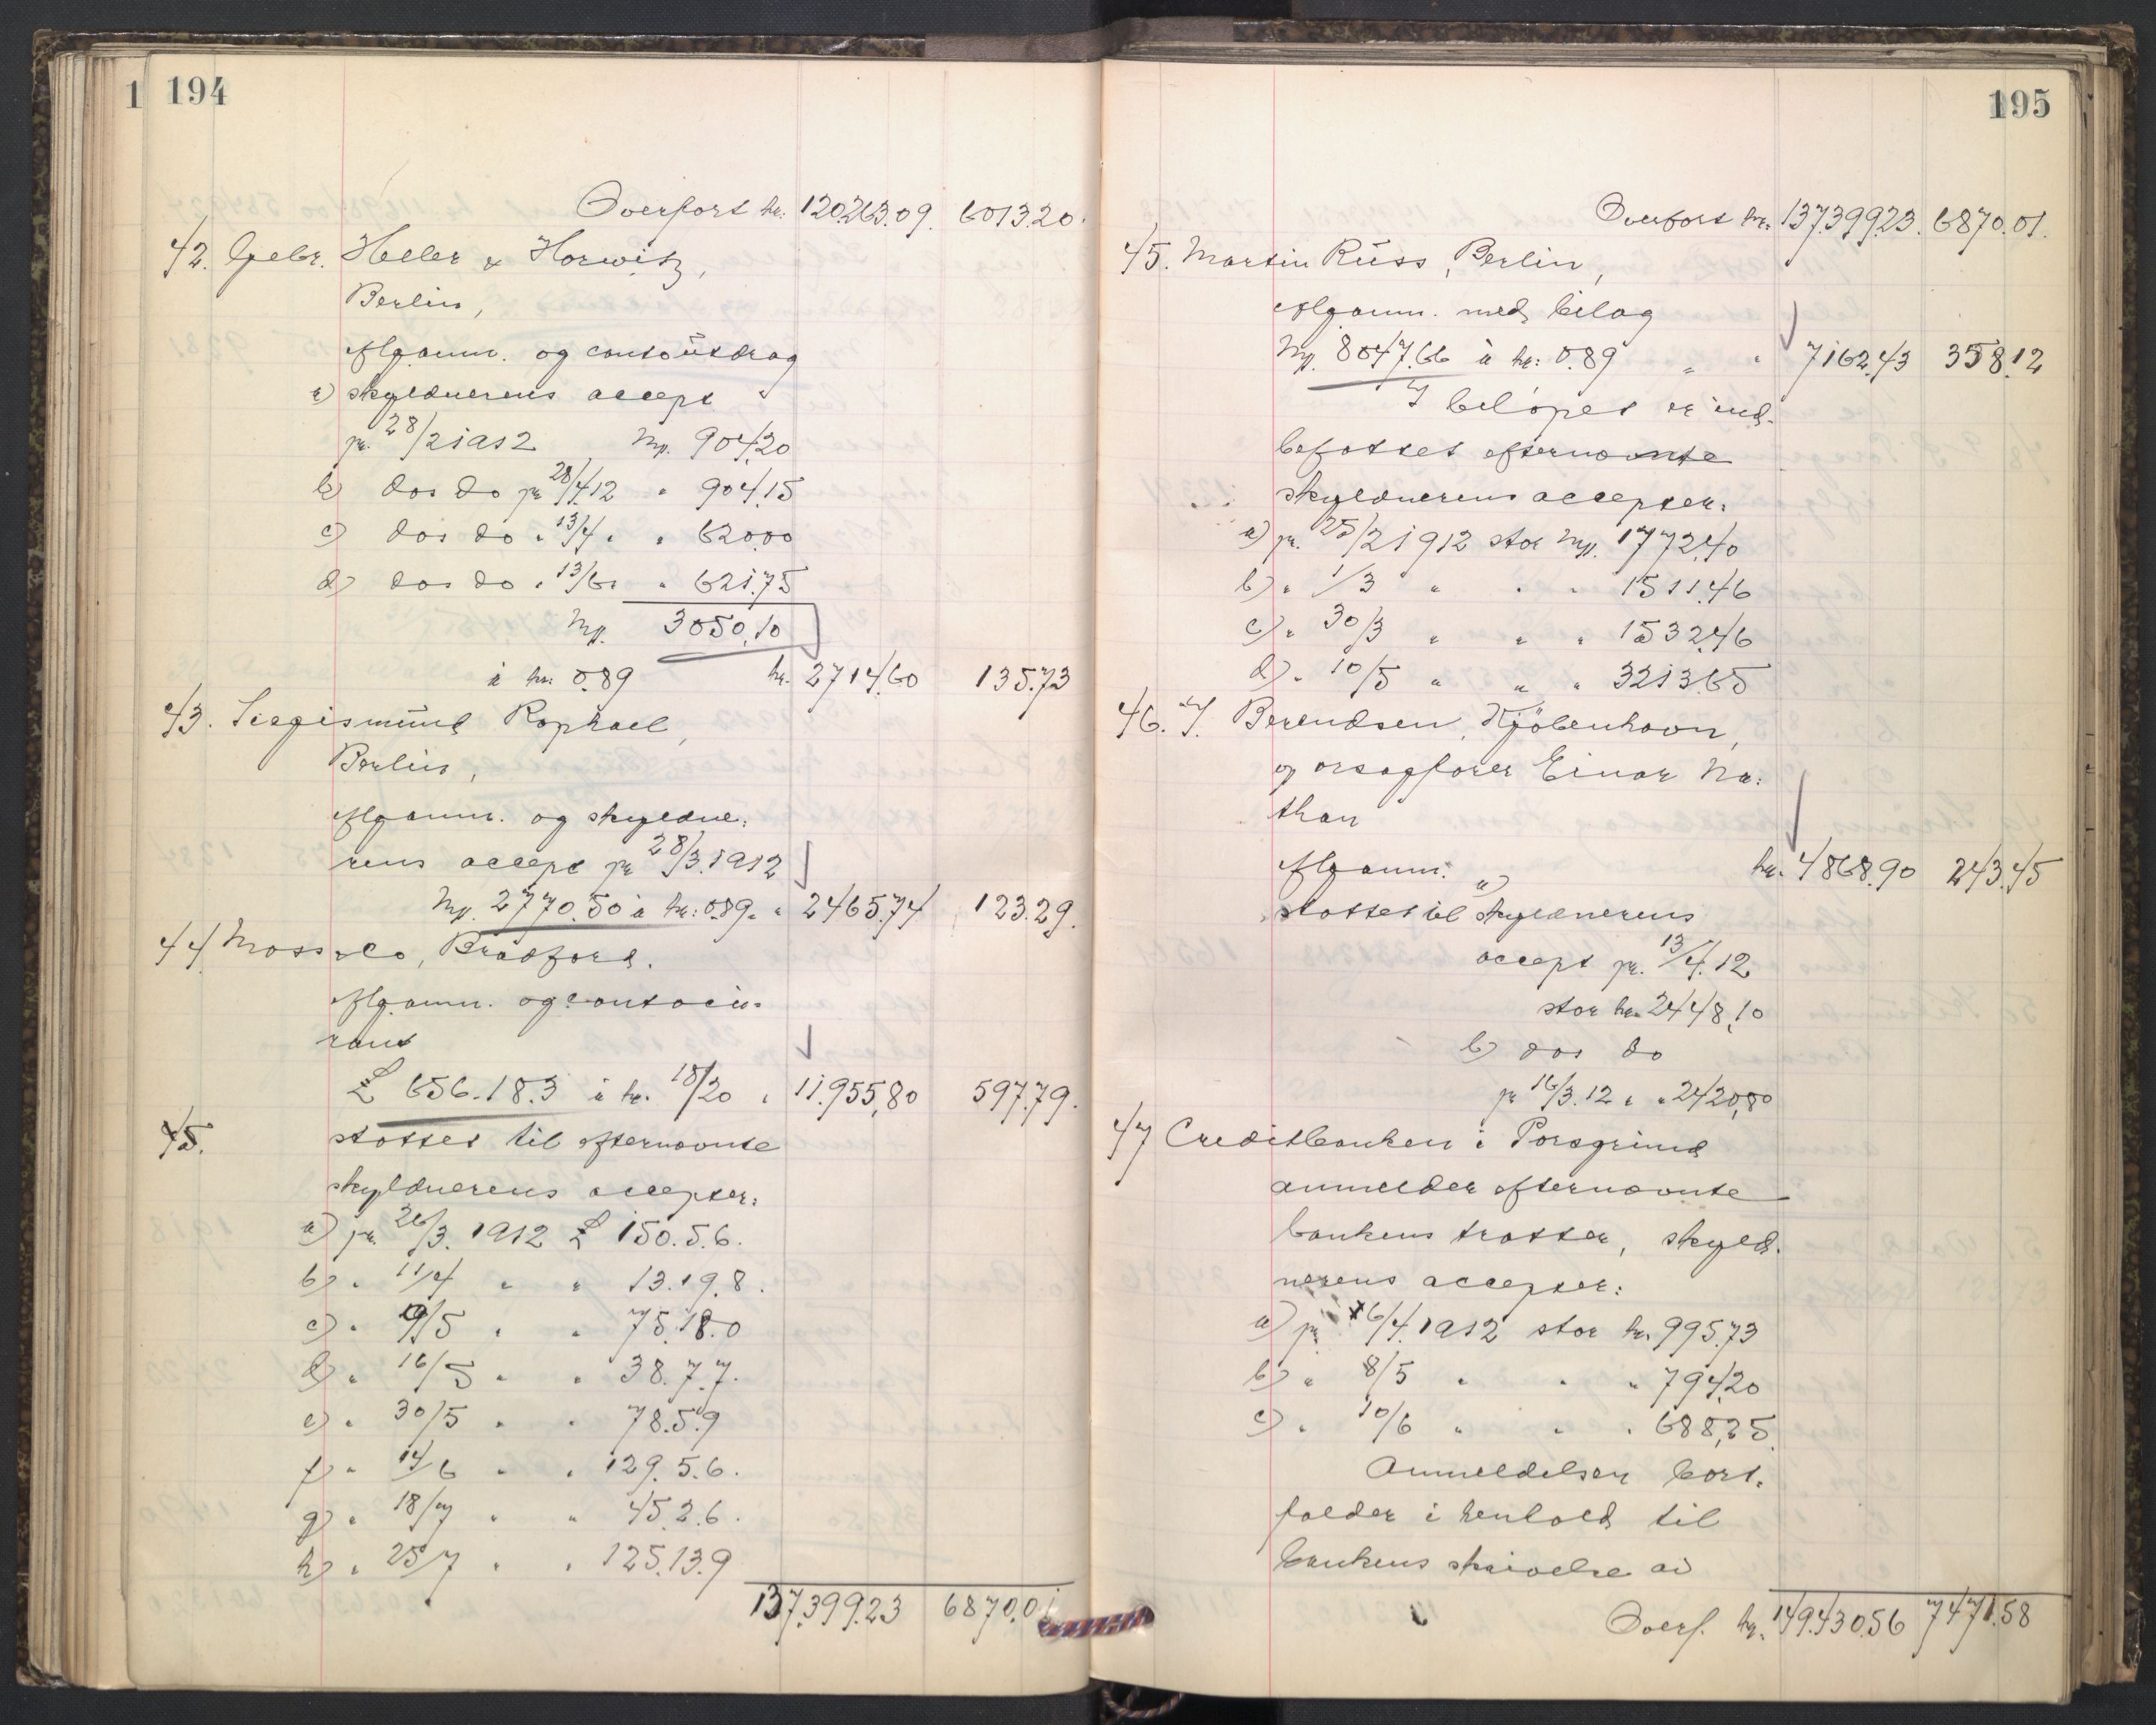 1 194
Overført kr. 120.263.09. 6013.20.
42. Gebr. Heller & Horwitz,
Berlin,
Afganm. og contoutdrag
a) skyldnerens accept
pr. 28/2 1912 Mk. 904,20
b) dos do pr 28/4.12 " 904.15
c) dos do " 13/4 " " 620,00
d) dos do " 13/6 " " 621.75
Mk. 3050,10
à kr. 0.89 kr. 2714.60 135.73
43. Siegismund Raphael,
Berlin,
Afganm. og skyldne-
rens accept pr 28/3. 1912
Mk. 2770.50 à kr: 0.89 " " 2465.74 123.29.
44. Moss & Co, Bradford.
Afganm. og contocu-
rant
£ 656.18.3 à kr. 18/20 " 11.955,80 597.79.
45. støttet til efternævnte
skyldnerens accepter:
a) pr. 26/3. 1912 £ 150.5.6.
b) " 11/4 " " 13.19.8.
c) " 9/5 " " 75.18.0
d) " 16/5 " " 38.7.7.
e) " 30/5 " " 78.5.9
f) " 14/6 " " 129.5.6.
g) " 18/7 " " 45.2.6.
h) " 25/7 " " 125.13.9
137.399.23 6870.01
195
Overført kr. 137.399.23. 6870.01.
45. Martin Russ, Berlin,
Afganm. med bilag
Mk. 8047.66 à kr: 0.89 " " 7162.43 358.12
I beløpet er ind-
befattet efternævnte
skyldnerens accepter:
a) pr. 25/2 1912 stor Mk. 1772.40
b) " 1/3 " " " 1511.46
c) " 30/3 " " " 1532.46
d) " 10/5 " " " 3213.65
46. I. Berendsen, Kjöbenhavn,
og orsagfører Einar Na-
than
Afganm. kr. 4868.90 243.45
støttet til a) skyldnerens
accept pr. 13/4.12
stor kr. 2448,10
b) dos do
pr 16/3.12 " " 2420,80
47 Creditbanken i Porsgrund
anmelder efternævnte
bankens tratter, skyld-
nerens accepter:
a) pr. 6/4. 1912 stor kr. 995.73
b) " 8/5 " " " 794.20
c) " 10/6 " " " 688,25.
Anmeldelsen bort-
falder i henhold til
bankens skrivelse av
Overf. kr. 149.430.56 7471.58